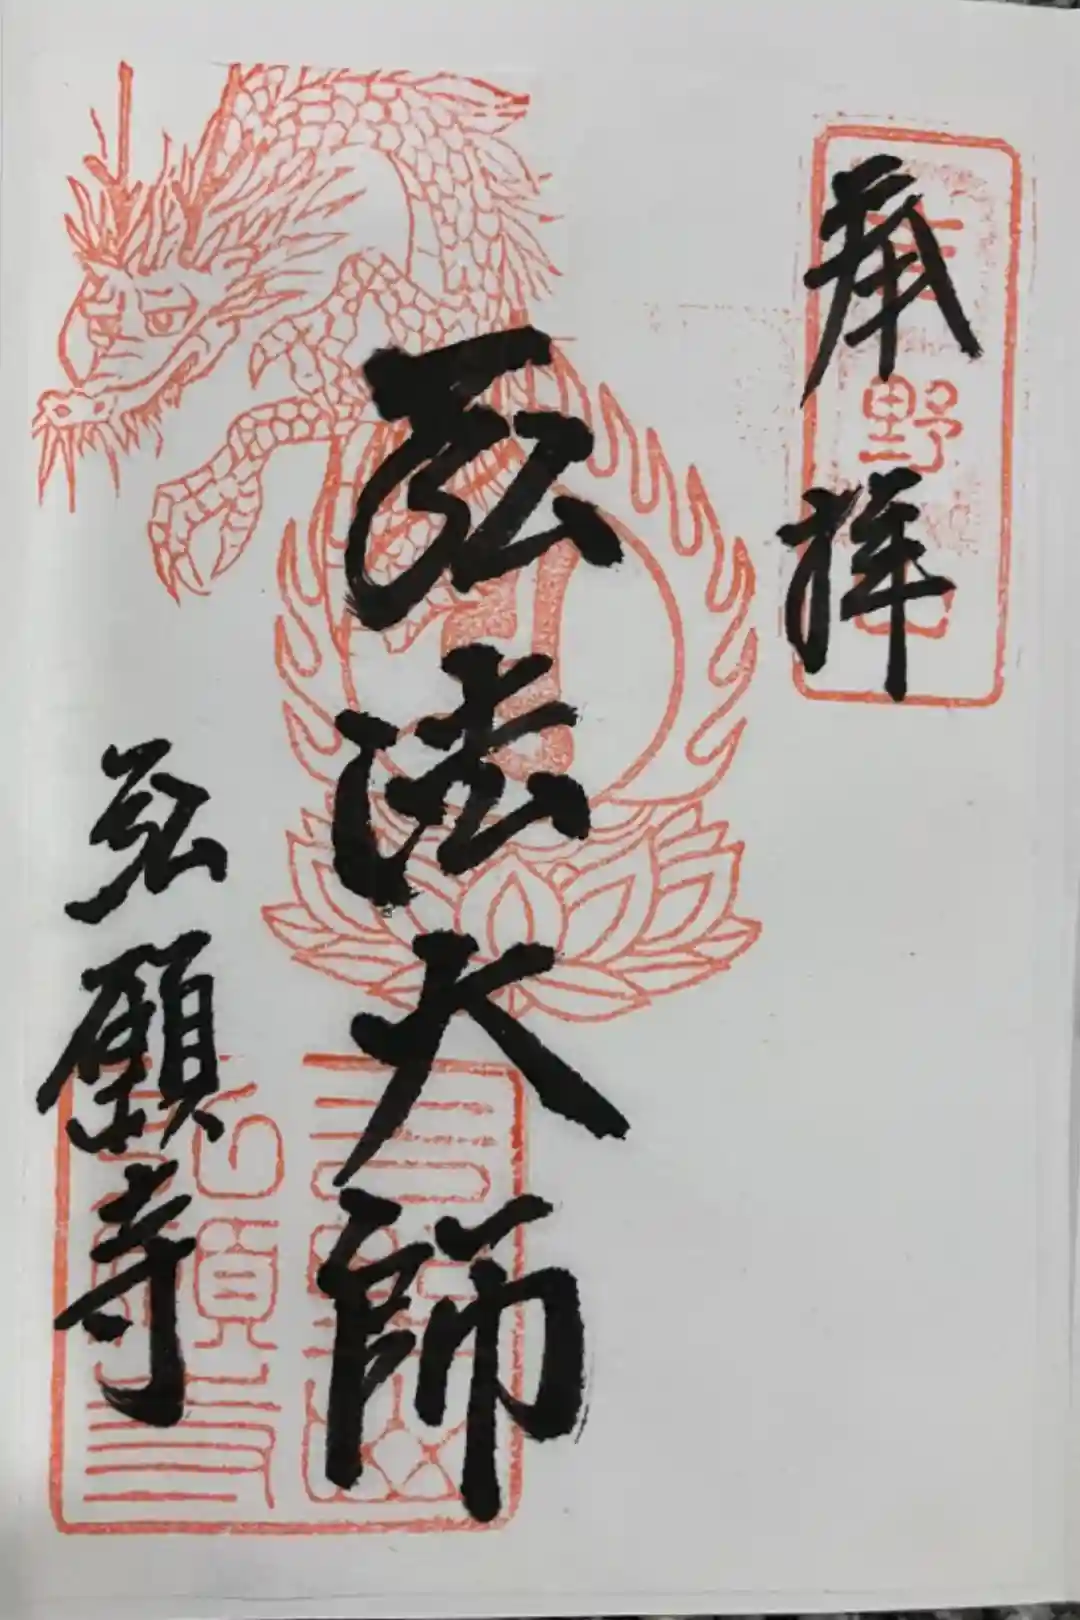 奉拝
弘法大師
弘願寺
野